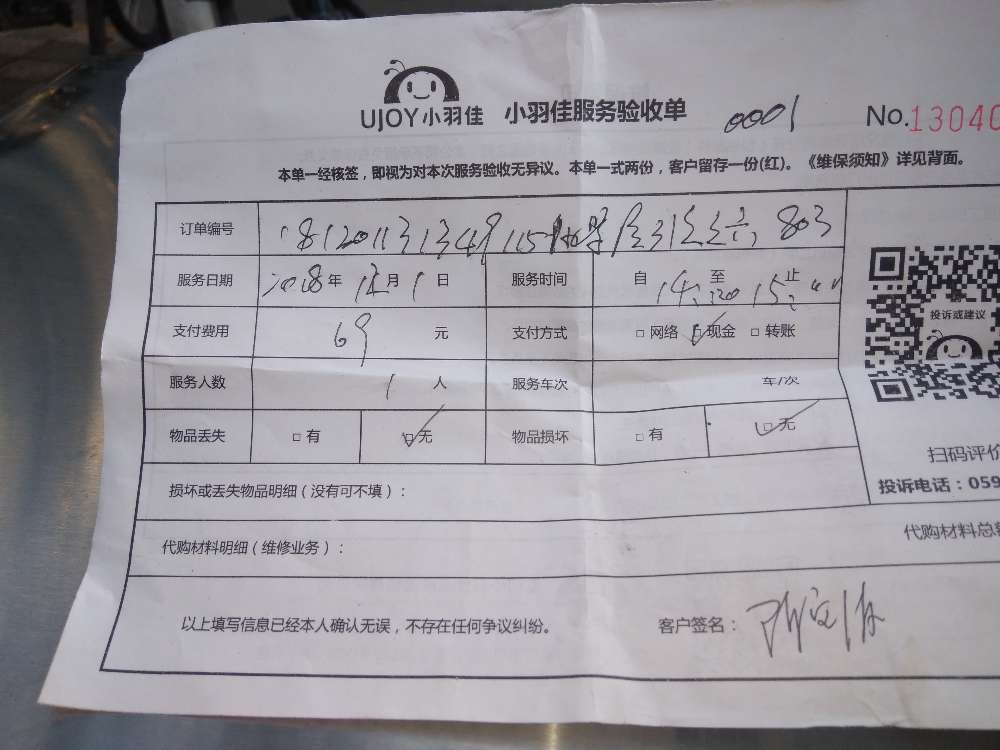 UJOY小羽佳 小羽佳服务验收单 0001 No.13040
本单一经核签，即视为对本次服务验收无异议。本单一式两份，客户留存一份(红)。《维保须知》详见背面。
订单编号 181201131349115 803
服务日期 2018年12月1日 服务时间 自 至 止
支付费用 69 元 支付方式 □网络 □现金 □转账
服务人数 1 人 服务车次 车/次
物品丢失 □有 □无 物品损坏 □有 □无
投诉或建议
扫码评价
投诉电话：059
损坏或丢失物品明细（没有可不填）：
代购材料明细（维修业务）： 代购材料总
以上填写信息已经本人确认无误，不存在任何争议纠纷。 客户签名：